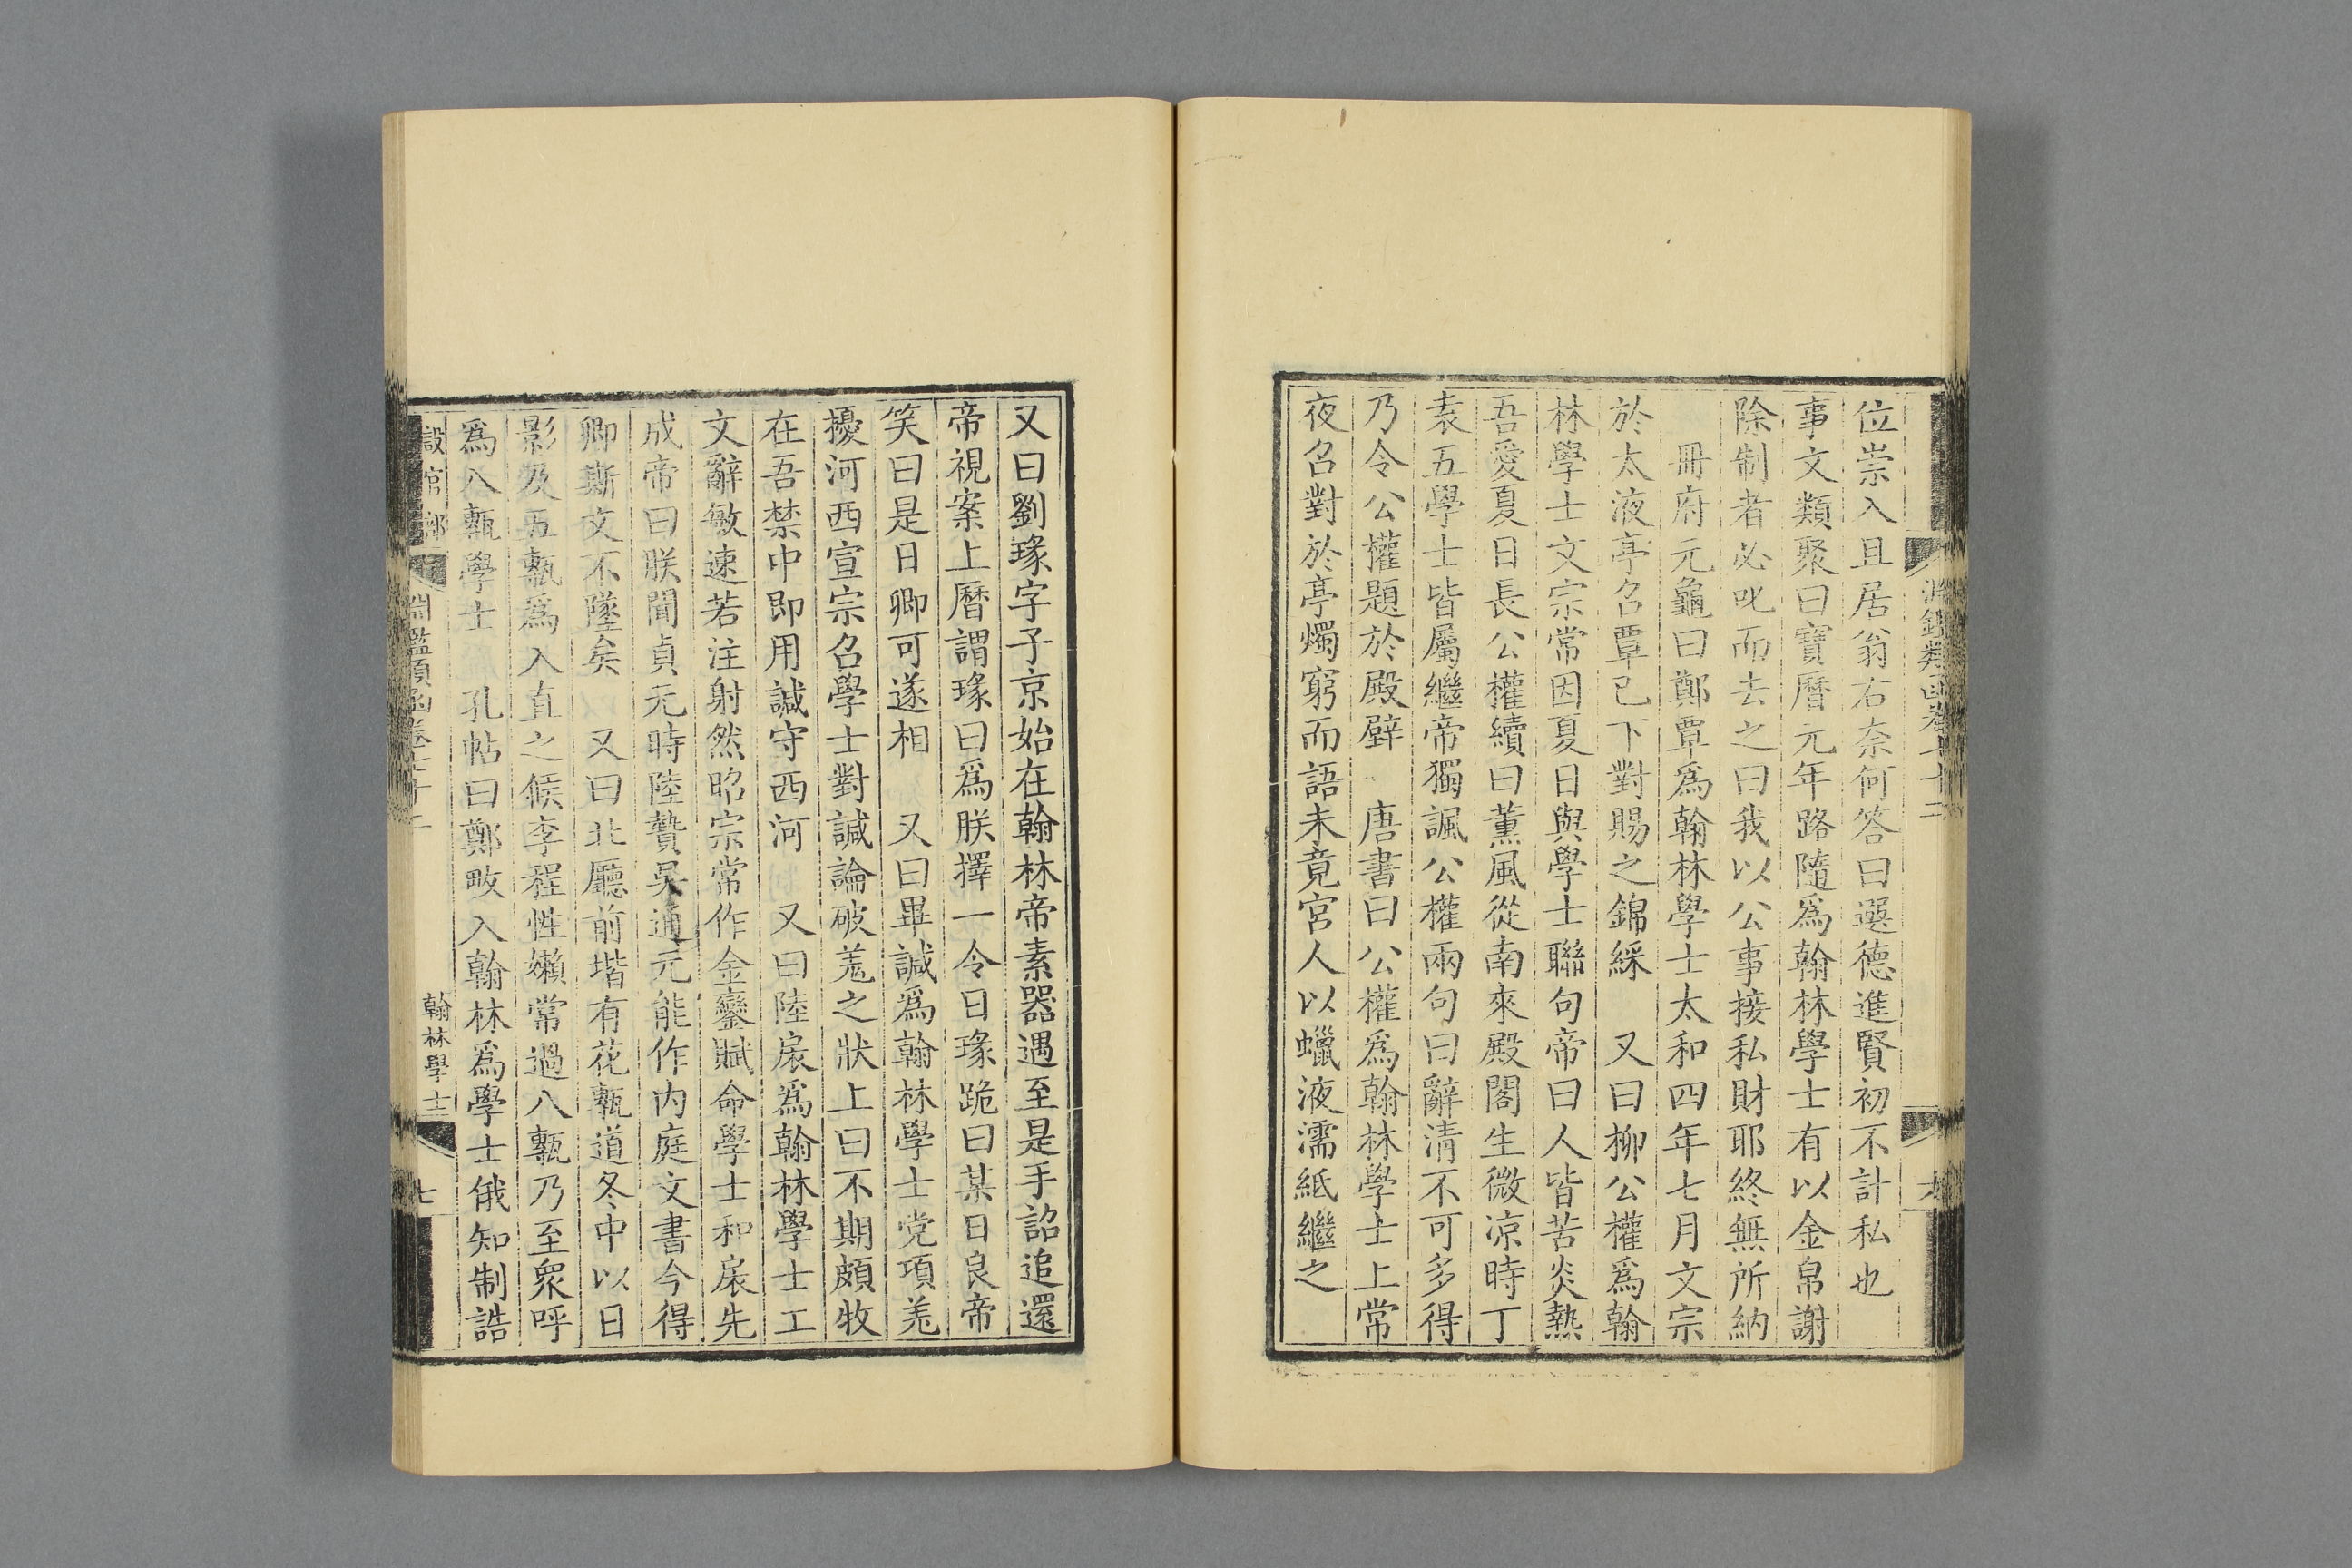 淵鑑類函卷七十二
位崇入且居翁右奈何答曰選德進賢初不計私也
事文類聚曰寶曆元年路隨爲翰林學士有以金帛謝
除制者必叱而去之曰我以公事接私財耶終無所納
冊府元龜曰鄭覃爲翰林學士太和四年七月文宗
於太液亭召覃已下對賜之錦綵　又曰柳公權爲翰
林學士文宗常因夏日與學士聯句帝曰人皆苦炎熱
吾愛夏日長公權續曰薰風從南來殿閣生微凉時丁
袁五學士皆屬繼帝獨諷公權兩句曰辭清不可多得
乃令公權題於殿壁　唐書曰公權爲翰林學士上常
夜召對於亭燭窮而語未竟宮人以蠟液濡紙繼之
又曰劉瑑字子京始在翰林帝素器遇至是手詔追還
帝視案上曆謂瑑曰爲朕擇一令日瑑跪曰某日良帝
笑曰是日卿可遂相　又曰畢諴爲翰林學士党項羌
擾河西宣宗召學士對諴論破羌之狀上曰不期頗牧
在吾禁中即用諴守西河　又曰陸扆爲翰林學士工
文辭敏速若注射然昭宗常作金鑾賦命學士和扆先
成帝曰朕聞貞元時陸贄吳通元能作内庭文書今得
卿斯文不墜矣　又曰北廳前堦有花甎道冬中以日
影及五甎爲入直之候李程性嬾常過八甎乃至衆呼
爲八甎學士　孔帖曰鄭畋入翰林爲學士俄知制誥
設官部　淵鑑類函卷七十二　翰林學士　七